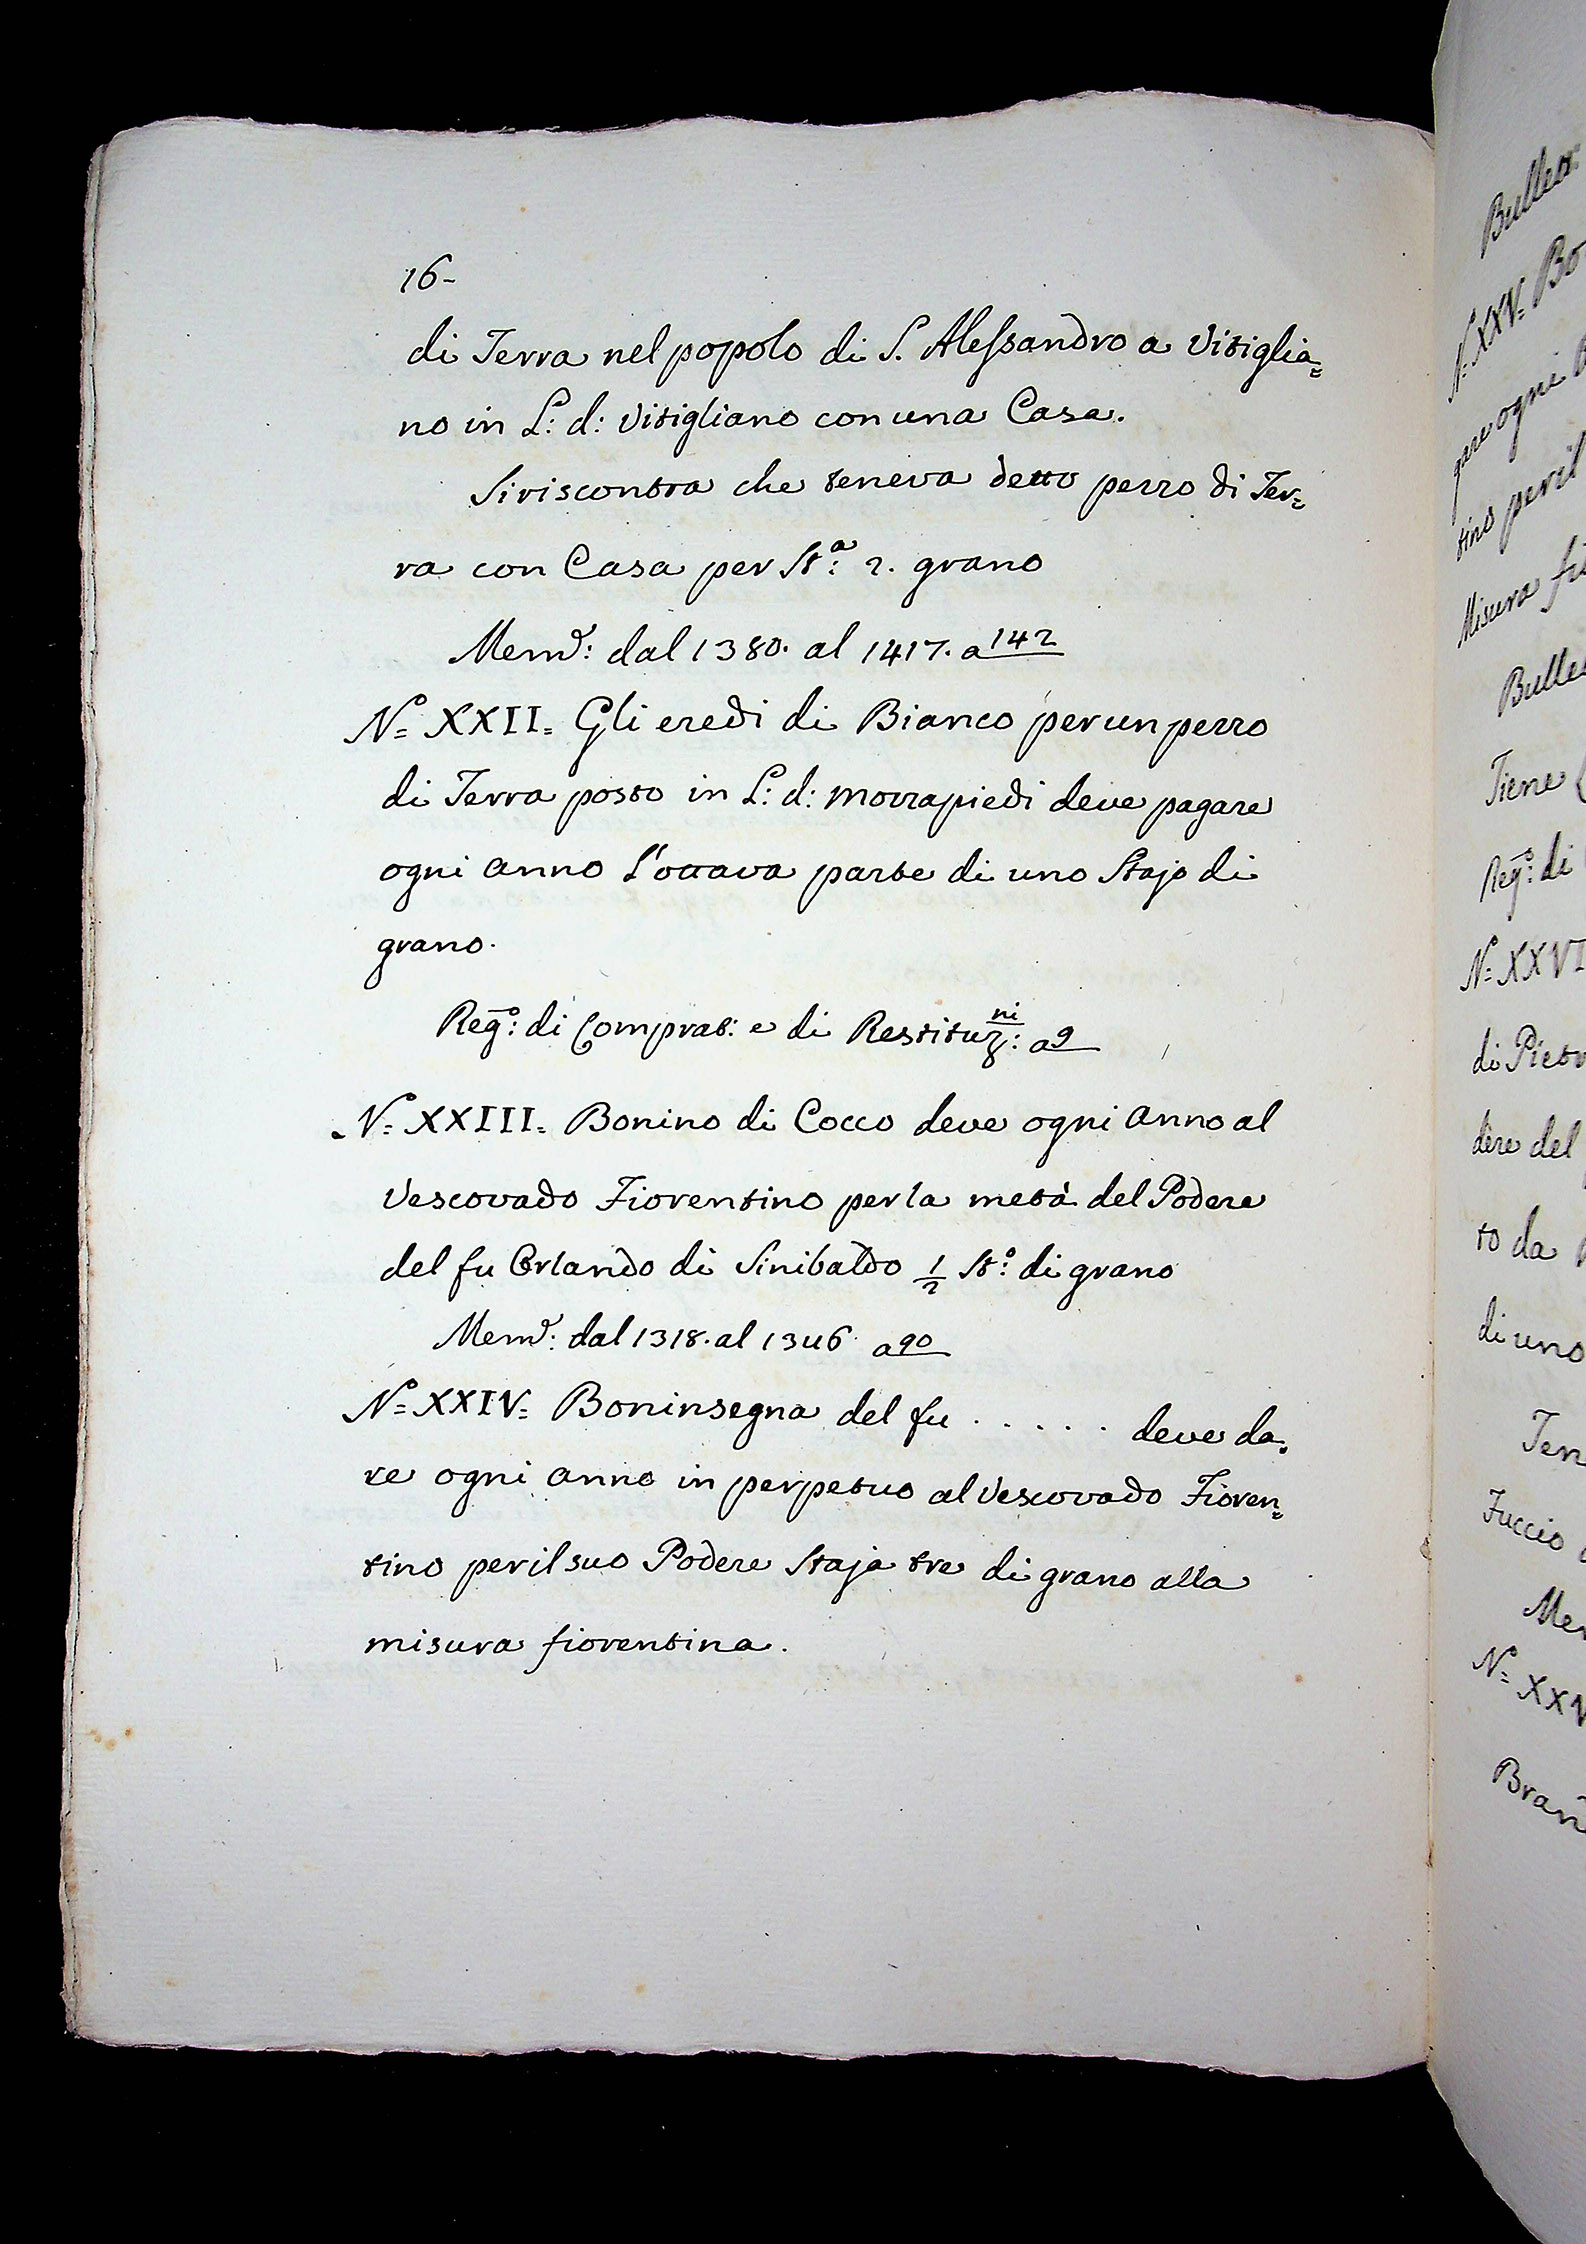 16-
di Terra nel popolo di S. Alessandro a Vitiglia=
no in L: d: Vitigliano con una Casa.
Si riscontra che teneva detto pezzo di Ter=
ra con Casa per St:ª 2. grano
Mem:ᵉ dal 1380. al 1417. a 142
N:º XXII= Gli eredi di Bianco per un pezzo
di Terra posto in L: d: Mozzapiedi deve pagare
ogni anno l'ottava parte di uno Stajo di
grano.
Reg:º di Comprat: e di Restituz:ni a 9
N:º XXIII= Bonino di Cocco deve ogni anno al
Vescovado Fiorentino per la metà del Podere
del fu Orlando di Sinibaldo 1/2 St:º di grano
Mem:ᵉ dal 1318. al 1346. a 90
N:º XXIV= Boninsegna del fu . . . . . deve da=
re ogni anno in perpetuo al Vescovado Fioren=
tino per il suo Podere Staja tre di grano alla
misura fiorentina.
N:º XXV= Bo
gare ogni
tino per il
Misura
Tiene
Reg:º di
N:º XXVI
di Pietr
dere del
to da
di uno
Ten
Fuccio
Mem
N:º XXV
Bran